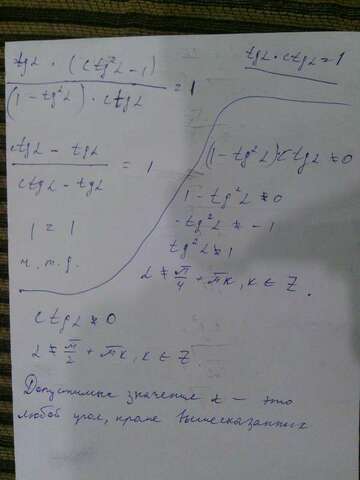 tgα · (ctg²α - 1)
(1 - tg²α) · ctgα = 1
tgα · ctgα = 1
ctgα - tgα
ctgα - tgα = 1
1 = 1
ч.т.д.
(1 - tg²α)ctgα ≠ 0
1 - tg²α ≠ 0
-tg²α ≠ -1
tg²α ≠ 1
α ≠ π/4 + πk, k ∈ Z.
ctgα ≠ 0
α ≠ π/2 + πk, k ∈ Z.
Допустимые значение α — это
любой угол, кроме вышесказанных